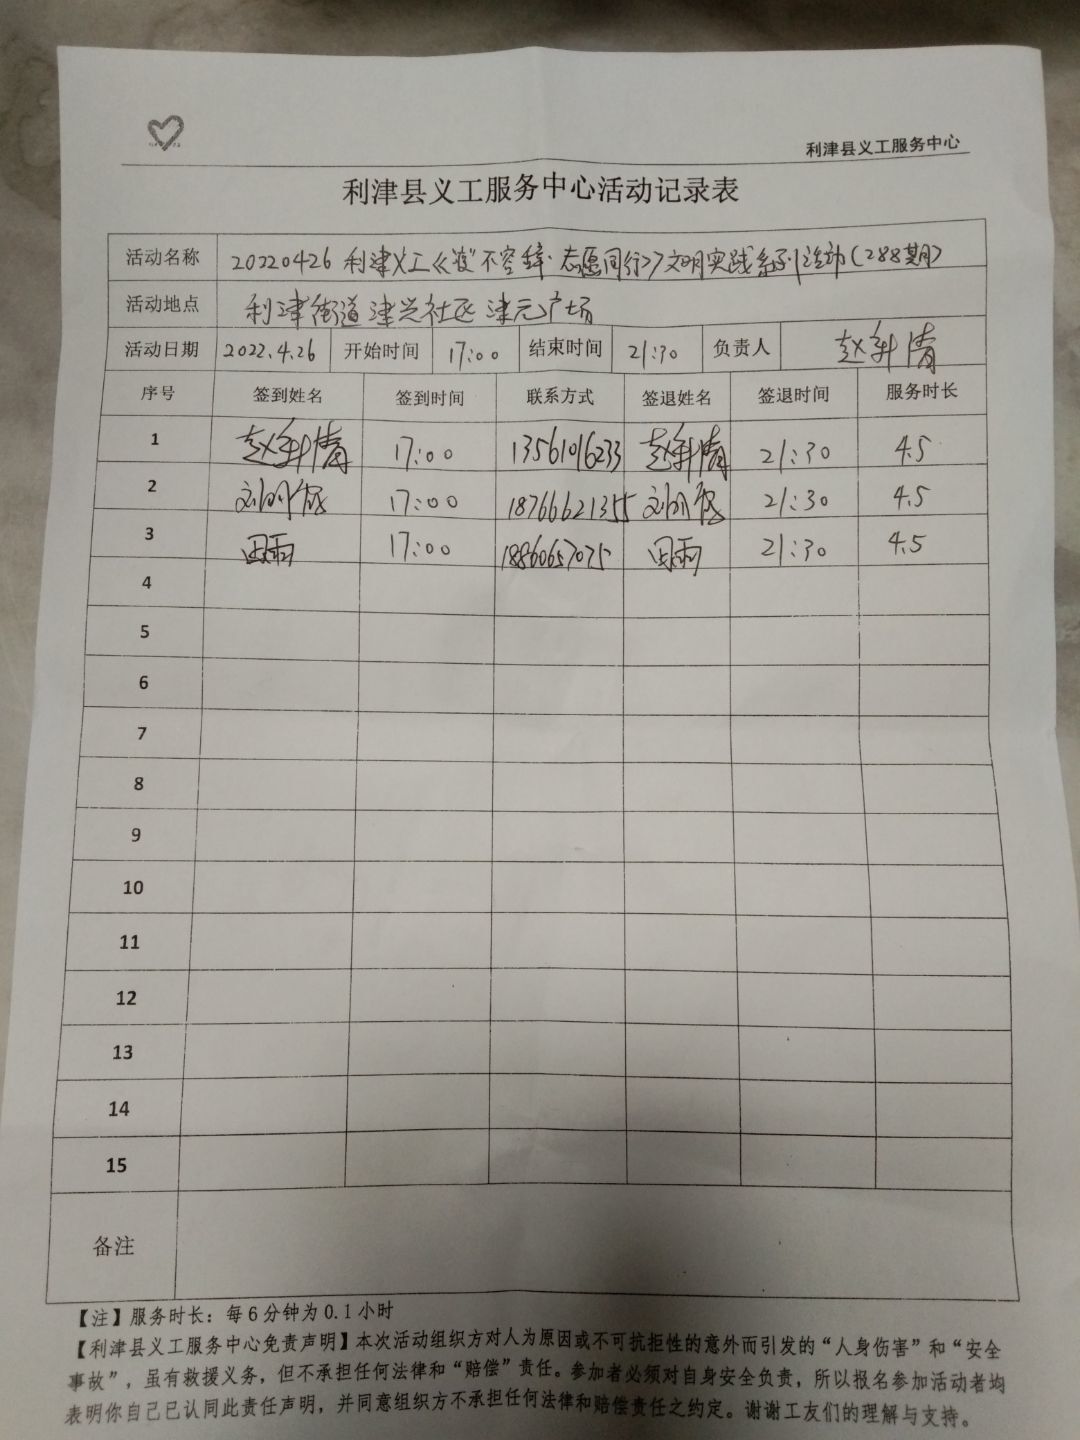 利津县义工服务中心
利津县义工服务中心活动记录表
活动名称 20220426 利津义工《"疫"不容辞·志愿同行》文明实践系列活动(288期)
活动地点 利津街道津兴社区津元广场
活动日期 2022.4.26 开始时间 17:00 结束时间 21:30 负责人 赵 清
序号 签到姓名 签到时间 联系方式 签退姓名 签退时间 服务时长
1 赵 清 17:00 13561016233 赵 清 21:30 4.5
2 刘 17:00 18766621355 刘 21:30 4.5
3 田雨 17:00 18860657075 田雨 21:30 4.5
4
5
6
7
8
9
10
11
12
13
14
15
备注
【注】服务时长：每6分钟为0.1小时
【利津县义工服务中心免责声明】本次活动组织方对人为原因或不可抗拒性的意外而引发的“人身伤害”和“安全
事故”，虽有救援义务，但不承担任何法律和“赔偿”责任。参加者必须对自身安全负责，所以报名参加活动者均
表明你自己已认同此责任声明，并同意组织方不承担任何法律和赔偿责任之约定。谢谢工友们的理解与支持。